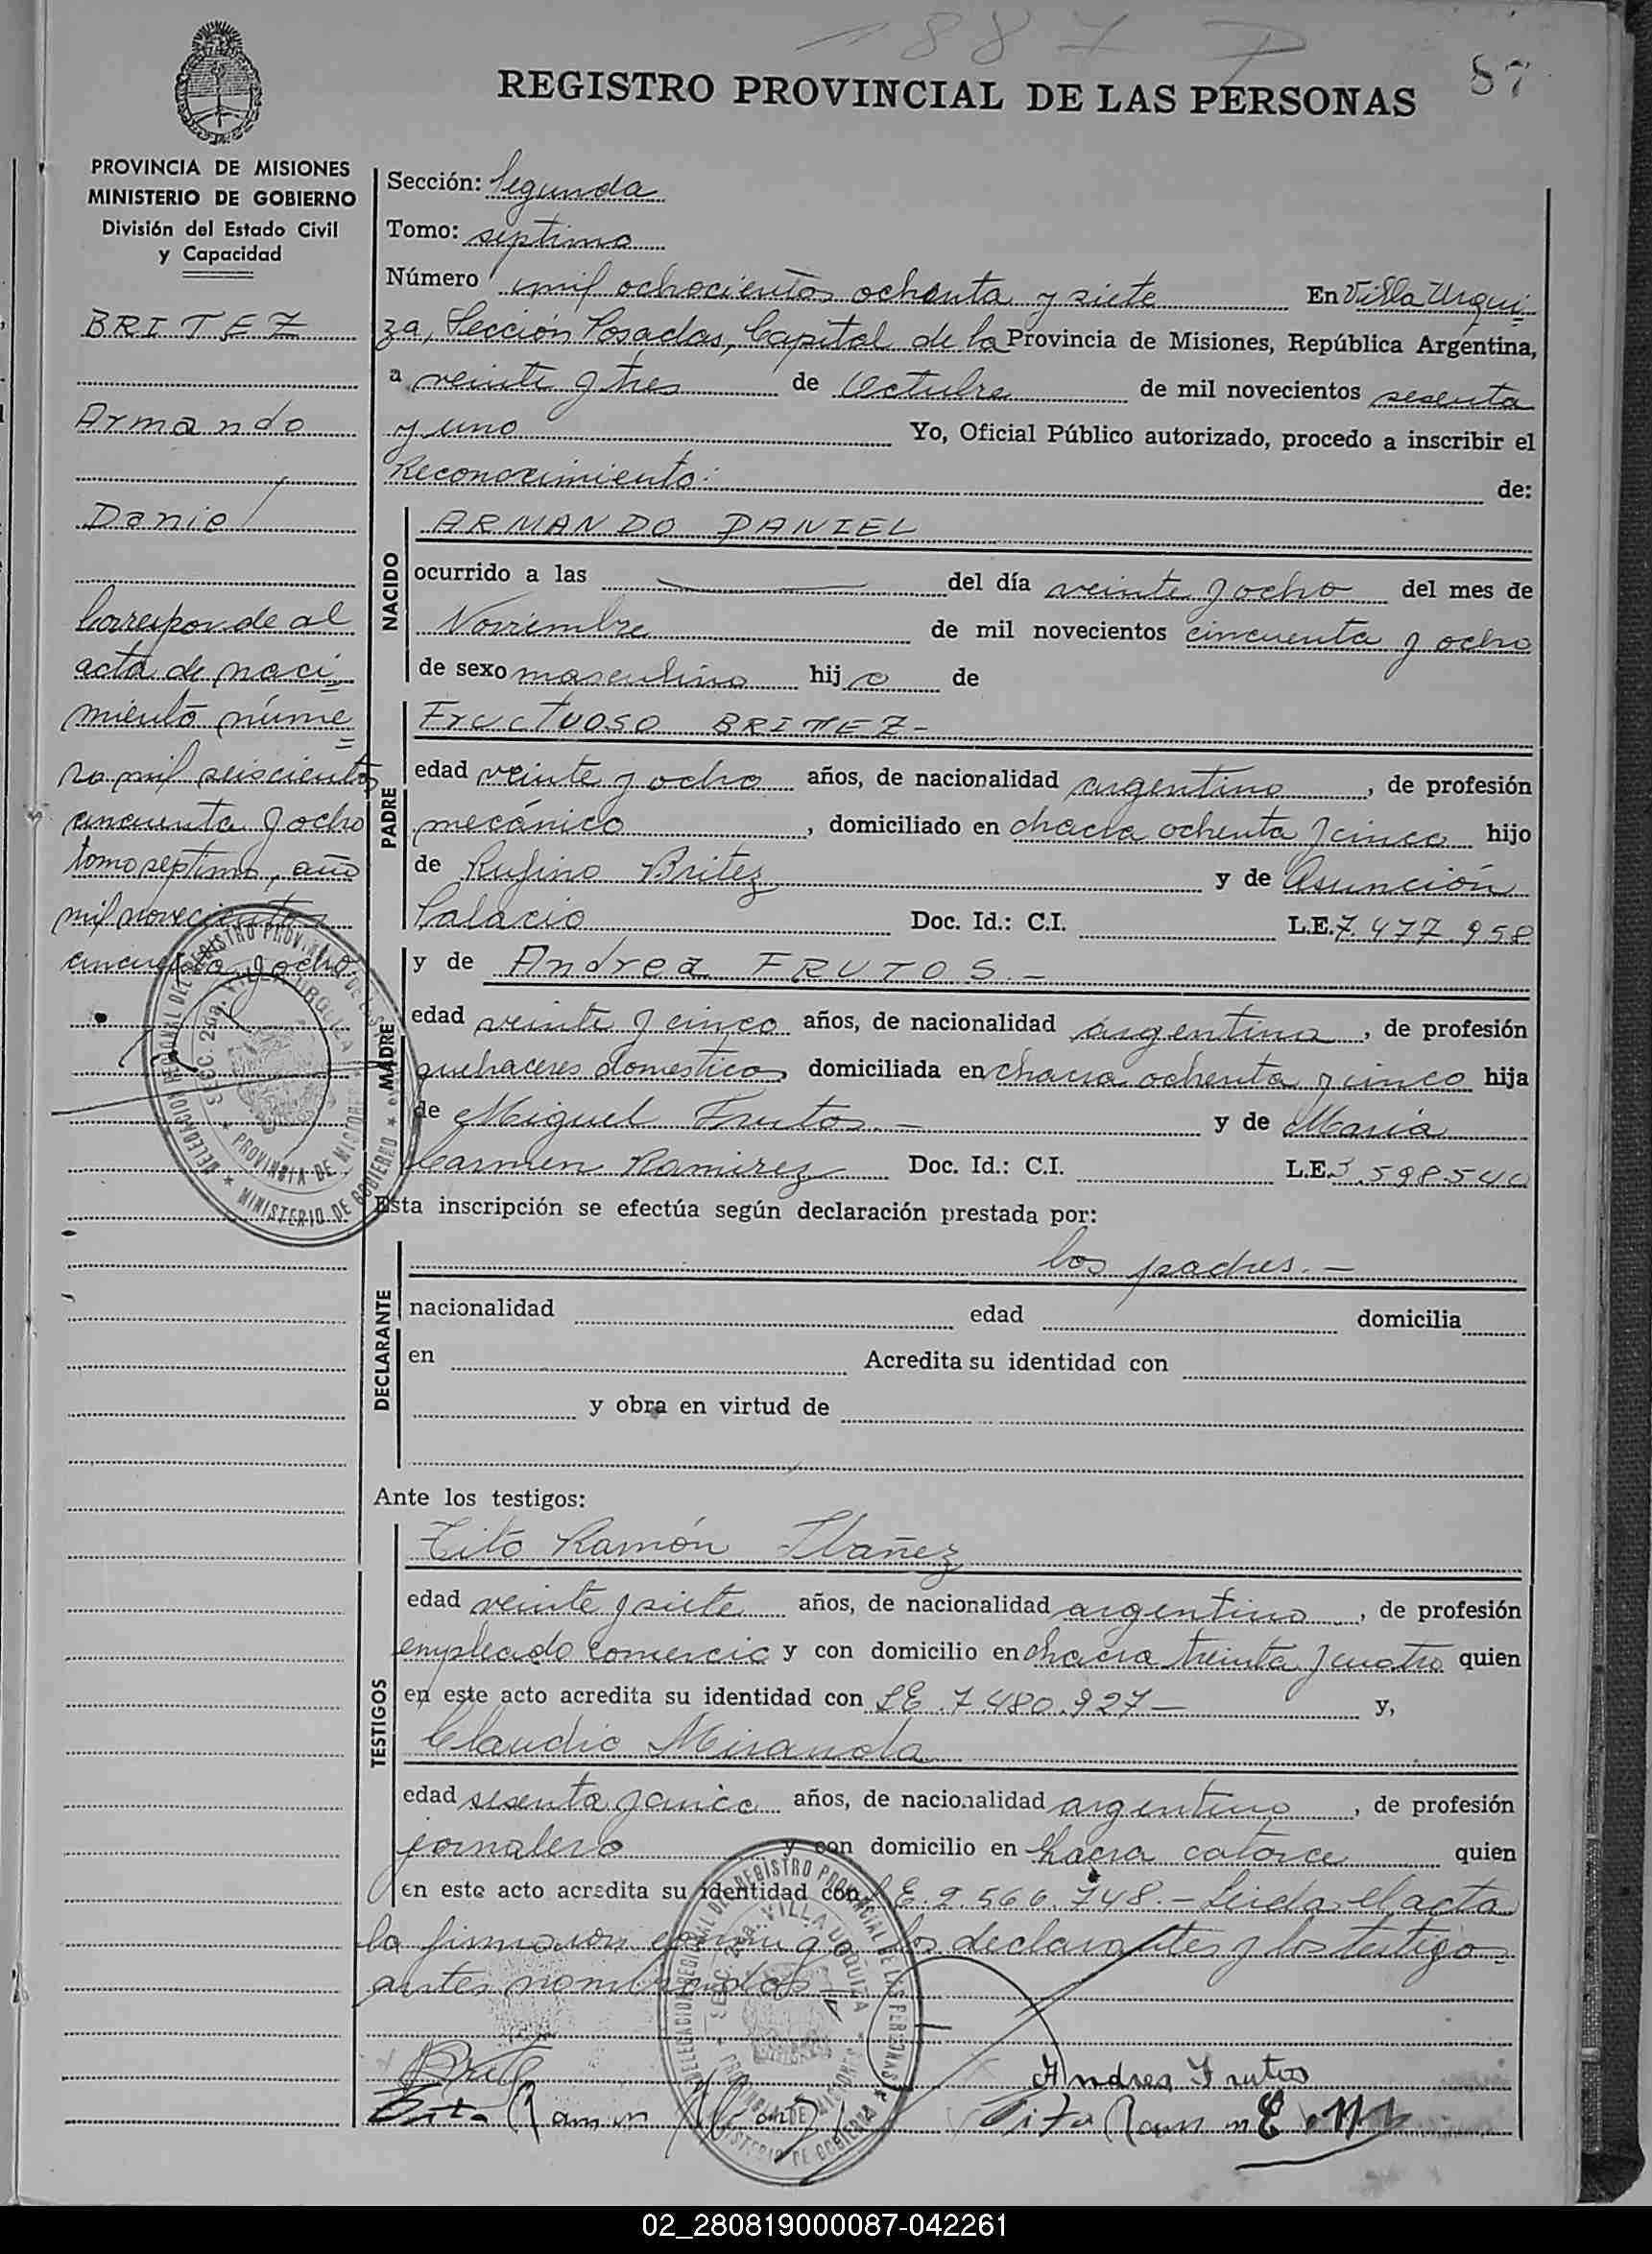 1887
87
REGISTRO PROVINCIAL DE LAS PERSONAS
PROVINCIA DE MISIONES
MINISTERIO DE GOBIERNO
División del Estado Civil
y Capacidad
BRITEZ
Armando
Daniel
Corresponde al
acta de naci
miento núme=
ro mil seiscientos
cincuenta y ocho
tomo septimo, año
mil novecientos
cincuenta y ocho.
Sección: Segunda
Tomo: septimo
Número mil ochocientos ochenta y siete En Villa Urqui=
za, Sección Posadas, Capital de la Provincia de Misiones, República Argentina,
a veinte y tres de Octubre de mil novecientos sesenta
y uno Yo, Oficial Público autorizado, procedo a inscribir el
Reconocimiento: de:
NACIDO
ARMANDO DANIEL
ocurrido a las del día veinte y ocho del mes de
Noviembre de mil novecientos cincuenta y ocho
de sexo masculino hijo de
PADRE
Fructuoso BRITEZ-
edad veinte y ocho años, de nacionalidad argentino, de profesión
mecánico, domiciliado en chacra ochenta y cinco hijo
de Rufino Britez y de Asunción
Palacio Doc. Id.: C.I. L.E. 7.477.958
MADRE
y de Andrea FRUTOS.-
edad veinte y cinco años, de nacionalidad argentina, de profesión
quehaceres domesticos domiciliada en chacra ochenta y cinco hija
de Miguel Frutos.- y de Maria
Carmen Ramirez Doc. Id.: C.I. L.E. 3.598.540
Esta inscripción se efectúa según declaración prestada por:
DECLARANTE
los padres.-
nacionalidad edad domicilia
en Acredita su identidad con
y obra en virtud de
Ante los testigos:
TESTIGOS
Tito Ramón Ibañez
edad veinte y siete años, de nacionalidad argentino, de profesión
empleado comercio y con domicilio en chacra treinta y cuatro quien
en este acto acredita su identidad con LE. 7.480.927- y,
Claudio Miranda
edad sesenta y cinco años, de nacionalidad argentino, de profesión
jornalero y con domicilio en chacra catorce quien
en este acto acredita su identidad con LE. 2.560.748.- Leida el acta
la firmaron conmigo los declarantes y los testigos
antes nombrados
Andrea Frutos
Tito Ramon
02_280819000087-042261